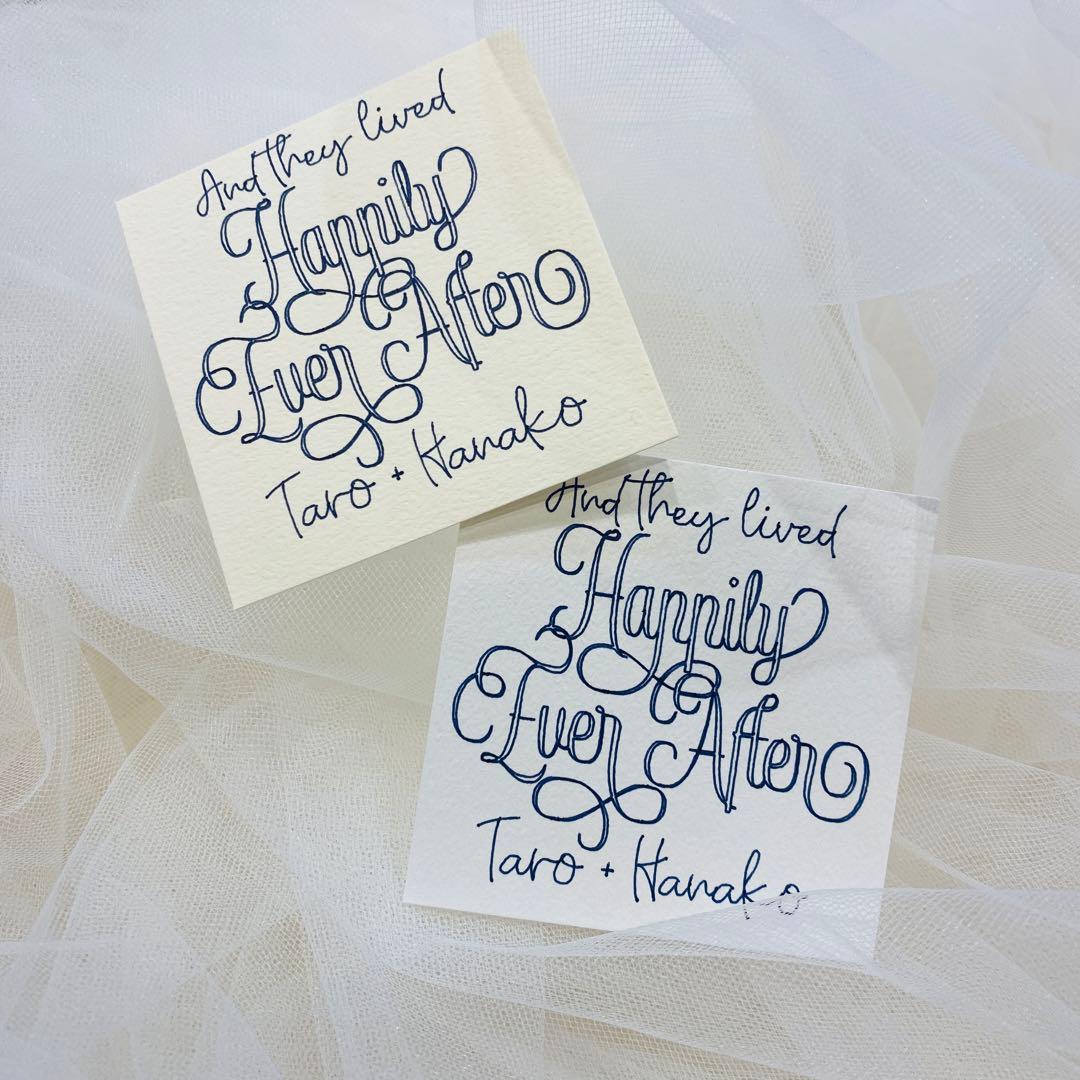 And they lived
Happily
Ever After
Taro + Hanako
And they lived
Happily
Ever After
Taro + Hanako